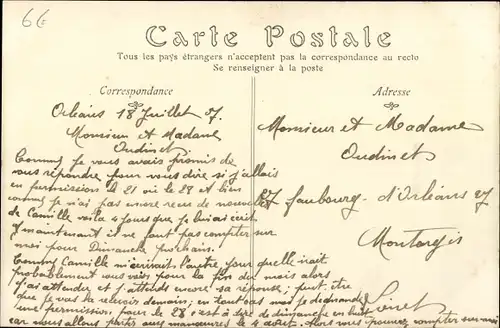 66
Carte Postale
Tous les pays étrangers n'acceptent pas la correspondance au recto
Se renseigner à la poste
Correspondance
Orléans 18 Juillet 07.
Monsieur et Madame
Oudinet
Comme je vous avais promis de
vous répondre pour vous dire si j'allais
en permission le 21 où le 28 et bien
comme je n'ai pas encore reçus de nouvelles
de Camille voila 4 jours que je lui ai écrit
maintenant il ne faut pas compter sur
moi pour Dimanche prochain.
Comme Camille m'écrivait l'autre jour quelle irait
probablement vous voir pour la fin du mois alors
j'ai attender et j'attends encore sa réponse; peut être
que je vas la recevoir demain; en tout cas moi je demanderai
une permission pour le 28 c'est à dire de dimanche en huit
car nous allons partir aux manœuvres le 4 août. Alors vous pouvez compter sur moi
Adresse
Monsieur et Madame
Oudinet
27 faubourg d'Orléans 27
Montargis
Loiret